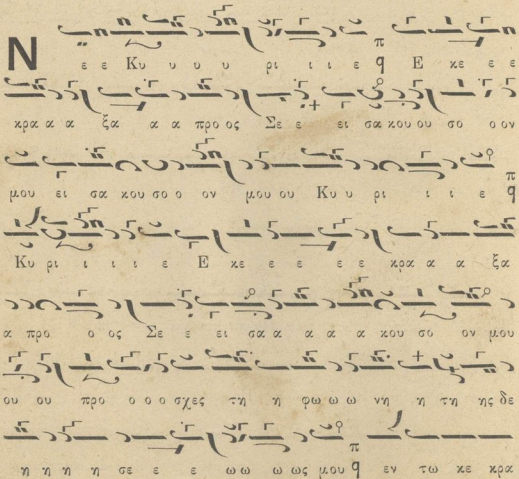 Ν ε ε Κυ υ υ υ ρι ι ι ε π q Ε κε ε ε
κρα α α ξα α α προ ος Σε ε ει σα κου ου σο ο ον
μου ει σα κου σο ο ον μου ου Κυ υ ρι ι ι ε π q
Κυ ρι ι ι ε Ε κε ε ε ε ε κρα α α ξα
α προ ο ος Σε ε ει σα α α α α κου σο ον μου
ου ου προ ο ο ο σχες τη η φω ω ω νη η τη ης δε
η η η η σε ε ε ε ωω ω ως μου π q εν τω κε κρα